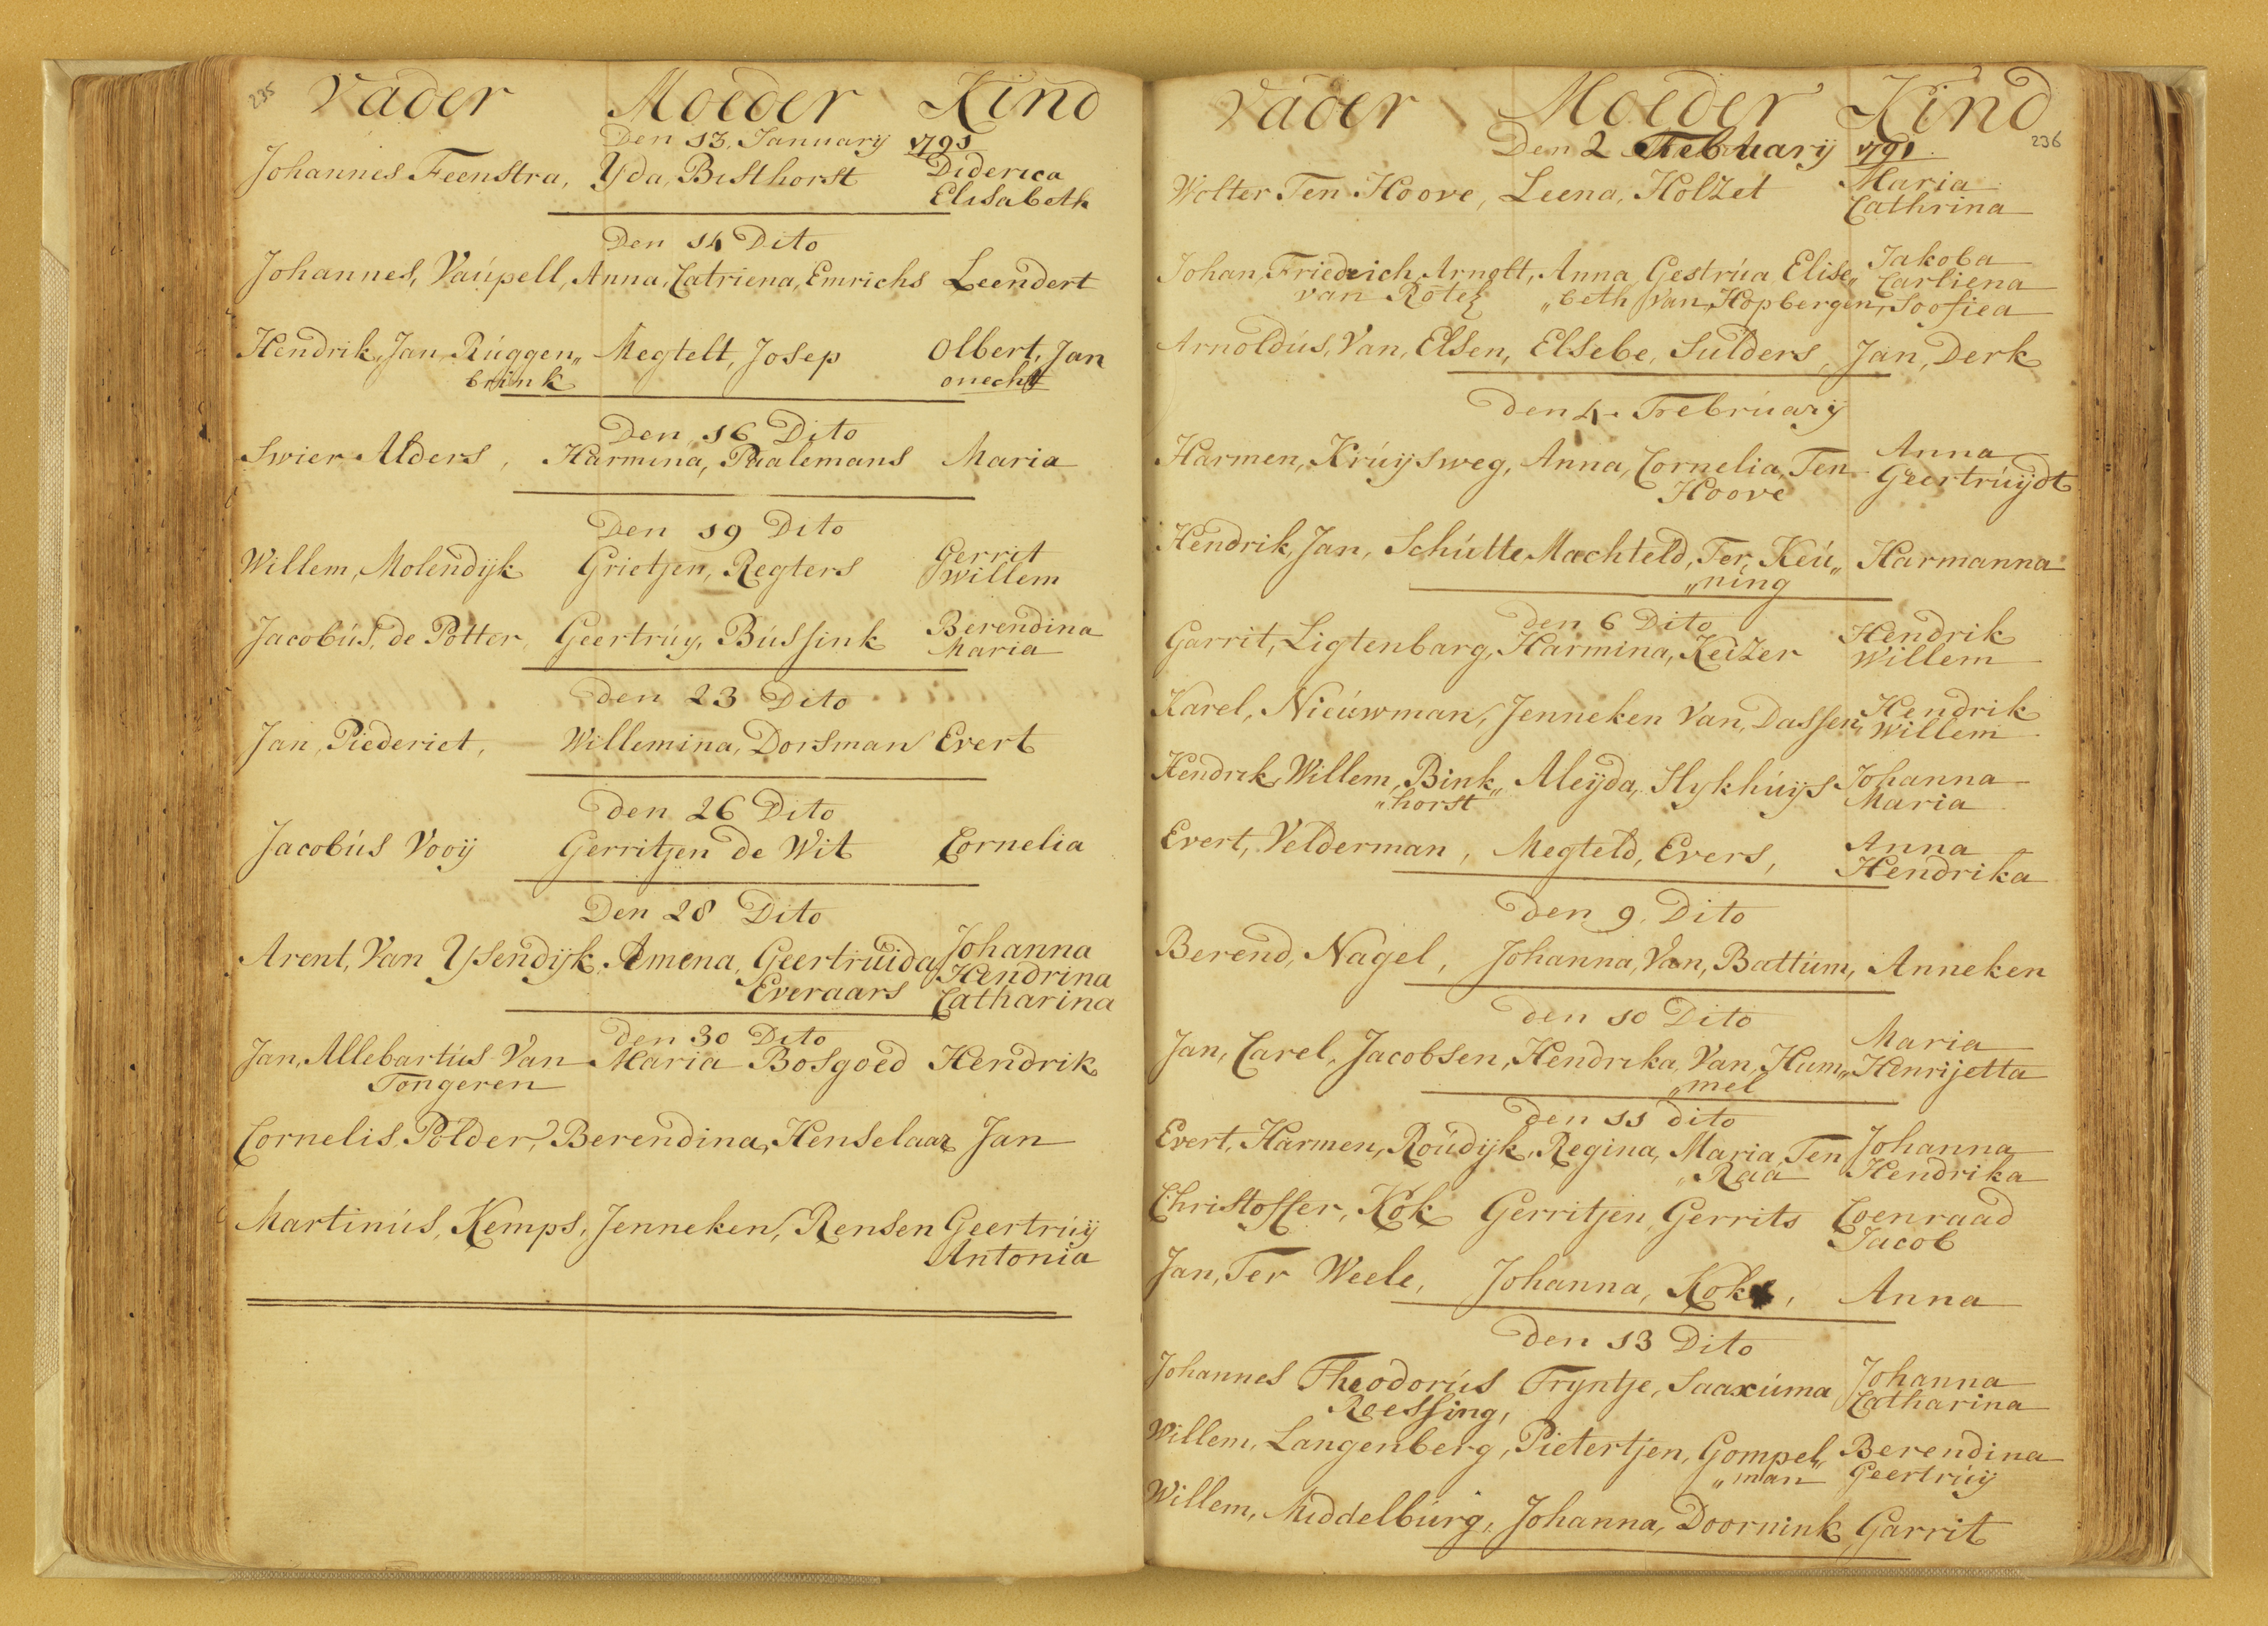 235
Vader Moeder Kind
Den 13, Januarij 1791
Johannes Feenstra, Yda, Bisthorst Diderica
Elisabeth
Den 14 Dito
Johannes, Vaúpell, Anna, Catriena, Emrichs Leendert
Hendrik, Jan, Rúggen„ Megtelt, Josep Olbert, Jan
brink onecht
Den 16 Dito
Swier Alders, Harmina, Paalemans Maria
Den 19 Dito
Willem, Molendijk Grietjen, Regters Gerrit
Willem
Jacobús, de Potter, Geertrúy, Bússink Berendina
Maria
den 23 Dito
Jan, Piederiet, Willemina, Dorsman Evert
den 26 Dito
Jacobús Vooij Gerritjen de Wit Cornelia
Den 28 Dito
Arent, Van Ysendijk, Amena, Geertrúida Johanna
Hendrina
Everaars Catharina
den 30 Dito
Jan, Allebartús Van Maria Bosgoed Hendrik
Tongeren
Cornelis, Polder, Berendina, Henselaar Jan
Martinús, Kemps, Jenneken, Rensen Geertrúij
Antonia
Vader Moeder Kind
236
Den 2 February 1791.
Wolter Ten Hoove, Leena, Holzet Maria
Cathrina
Johan, Friedrich, Arnolt, Anna, Gestrúa Elise„ Jakoba
Carliena
van Rotez „beth Van, Hopbergen, Soofiea
Arnoldús, Van, Elsen, Elsebe, Sulders, Jan, Derk
den 4. Februarij
Harmen, Krúijsweg, Anna, Cornelia, Ten Anna
Hoove Geertrúijdt
Hendrik, Jan, Schútte Machteld, Ter, Keú„ Harmanna
„ning
den 6 Dito
Garrit, Ligtenbarg, Harmina, Keizer Hendrik
Willem
Karel, Nieúwman, Jenneken Van, Dassen, Hendrik
Willem
Hendrik, Willem, Bink„ Aleijda, Slykhúijs Johanna
„horst Maria
Evert, Velderman, Megteld, Evers, Anna
Hendrika
den 9. Dito
Berend, Nagel, Johanna, Van, Battúm, Anneken
den 10 Dito
Jan, Carel, Jacobsen, Hendrika, Van, Hum„ Maria
Henrijetta
„mel
den 11 dito
Evert, Harmen, Roúdijk, Regina, Maria, Ten Johanna
„Raa Hendrika
Christoffer, Kok Gerritjen, Gerrits Coenraad
Jacob
Jan, Ter Weele, Johanna, Kok, Anna
den 13 Dito
Johannes Theodorús Tryntje, Saaxúma Johanna
Roessing, Catharina
Willem, Langenberg, Pietertjen, Gompel„ Berendina
„man Geertrúij
Willem, Middelbúrg, Johanna, Doornink Garrit